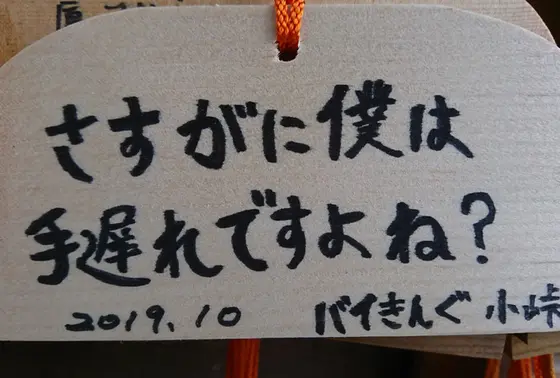 さすがに僕は
手遅れですよね?
2019.10 バイきんぐ 小峠